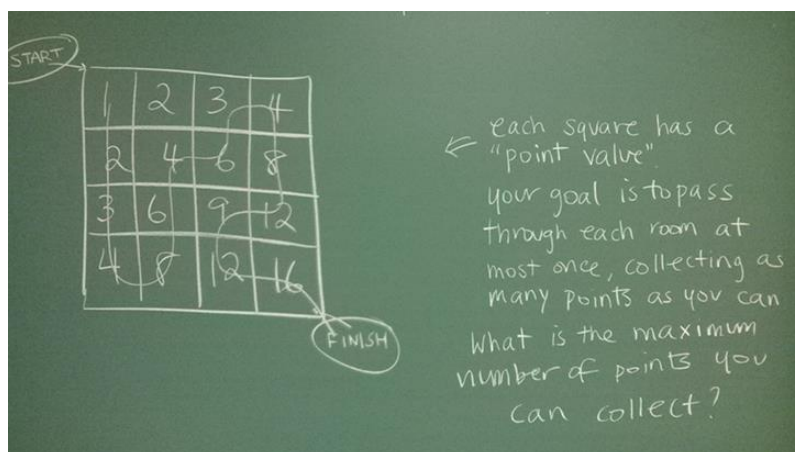 START
1 2 3 4
2 4 6 8
3 6 9 12
4 8 12 16
FINISH
each square has a
← "point value".
your goal is to pass
through each room at
most once, collecting as
many points as you can
What is the maximum
number of points you
can collect?